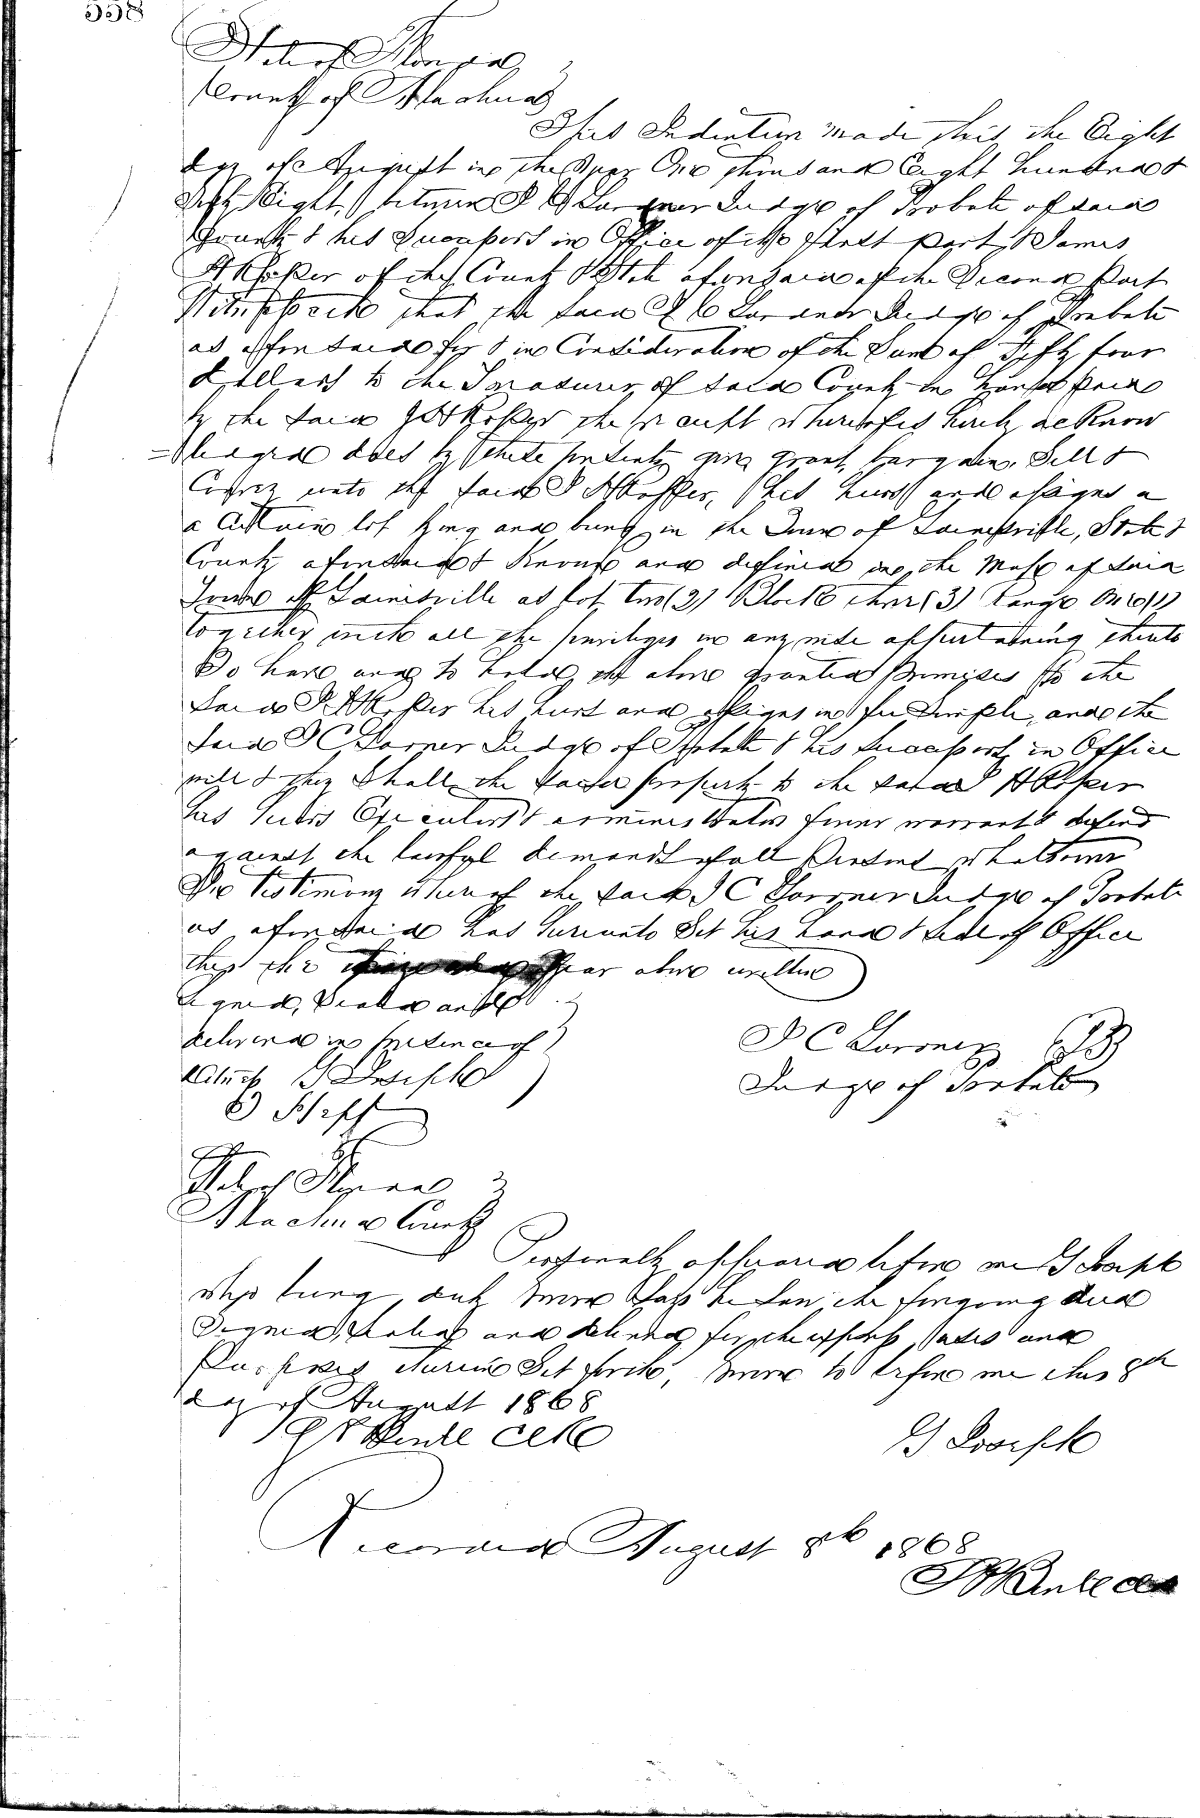 558
State of Florida
County of Alachua
This Indenture made this the Eight
day of August in the year One thousand Eight hundred &
Sixty Eight, between I C Gardner Judge of Probate of said
County & his Successors in Office of the first part, & James
H Roper of the County & State aforesaid of the Second Part
Witnesseth that the said I C Gardner Judge of Probate
as aforesaid for & in Consideration of the Sum of Fifty four
dollars to the Treasurer of said County in hand paid
by the said J H Roper the receipt whereof is hereby acknow
=ledged does by these presents give, grant, bargain, Sell &
Convey unto the said J H Roper, his heirs and assigns a
a Certain lot lying and being in the Town of Gainesville, State &
County aforesaid & Known and defined in the Map of said
Town of Gainesville as lot two (2) Block three (3) Range One (1)
together with all the privileges in any wise appertaining thereto
To have and to hold the above granted premises to the
said J H Roper his heirs and assigns in fee Simple, and the
said I C Gardner Judge of Probate & his Successors in Office
will & they Shall the said property to the said J H Roper
his heirs Executors & administrators forever warrant & defend
against the lawful demands of all Persons whatsoever
In testimony whereof the said I C Gardner Judge of Probate
as aforesaid has hereunto Set his hand & seal of Office
this the year above written
Signed, Sealed and
delivered in presence of
Witness G Joseph
I C Gardner
Judge of Probate
State of Florida
Alachua County
Personally appeared before me G Joseph
who being duly sworn says he saw the foregoing deed
Signed, Sealed and delivered for the express uses and
Purposes therein Set forth, sworn to before me this 8th
day of August 1868
Clk
G Joseph
Recorded August 8th 1868